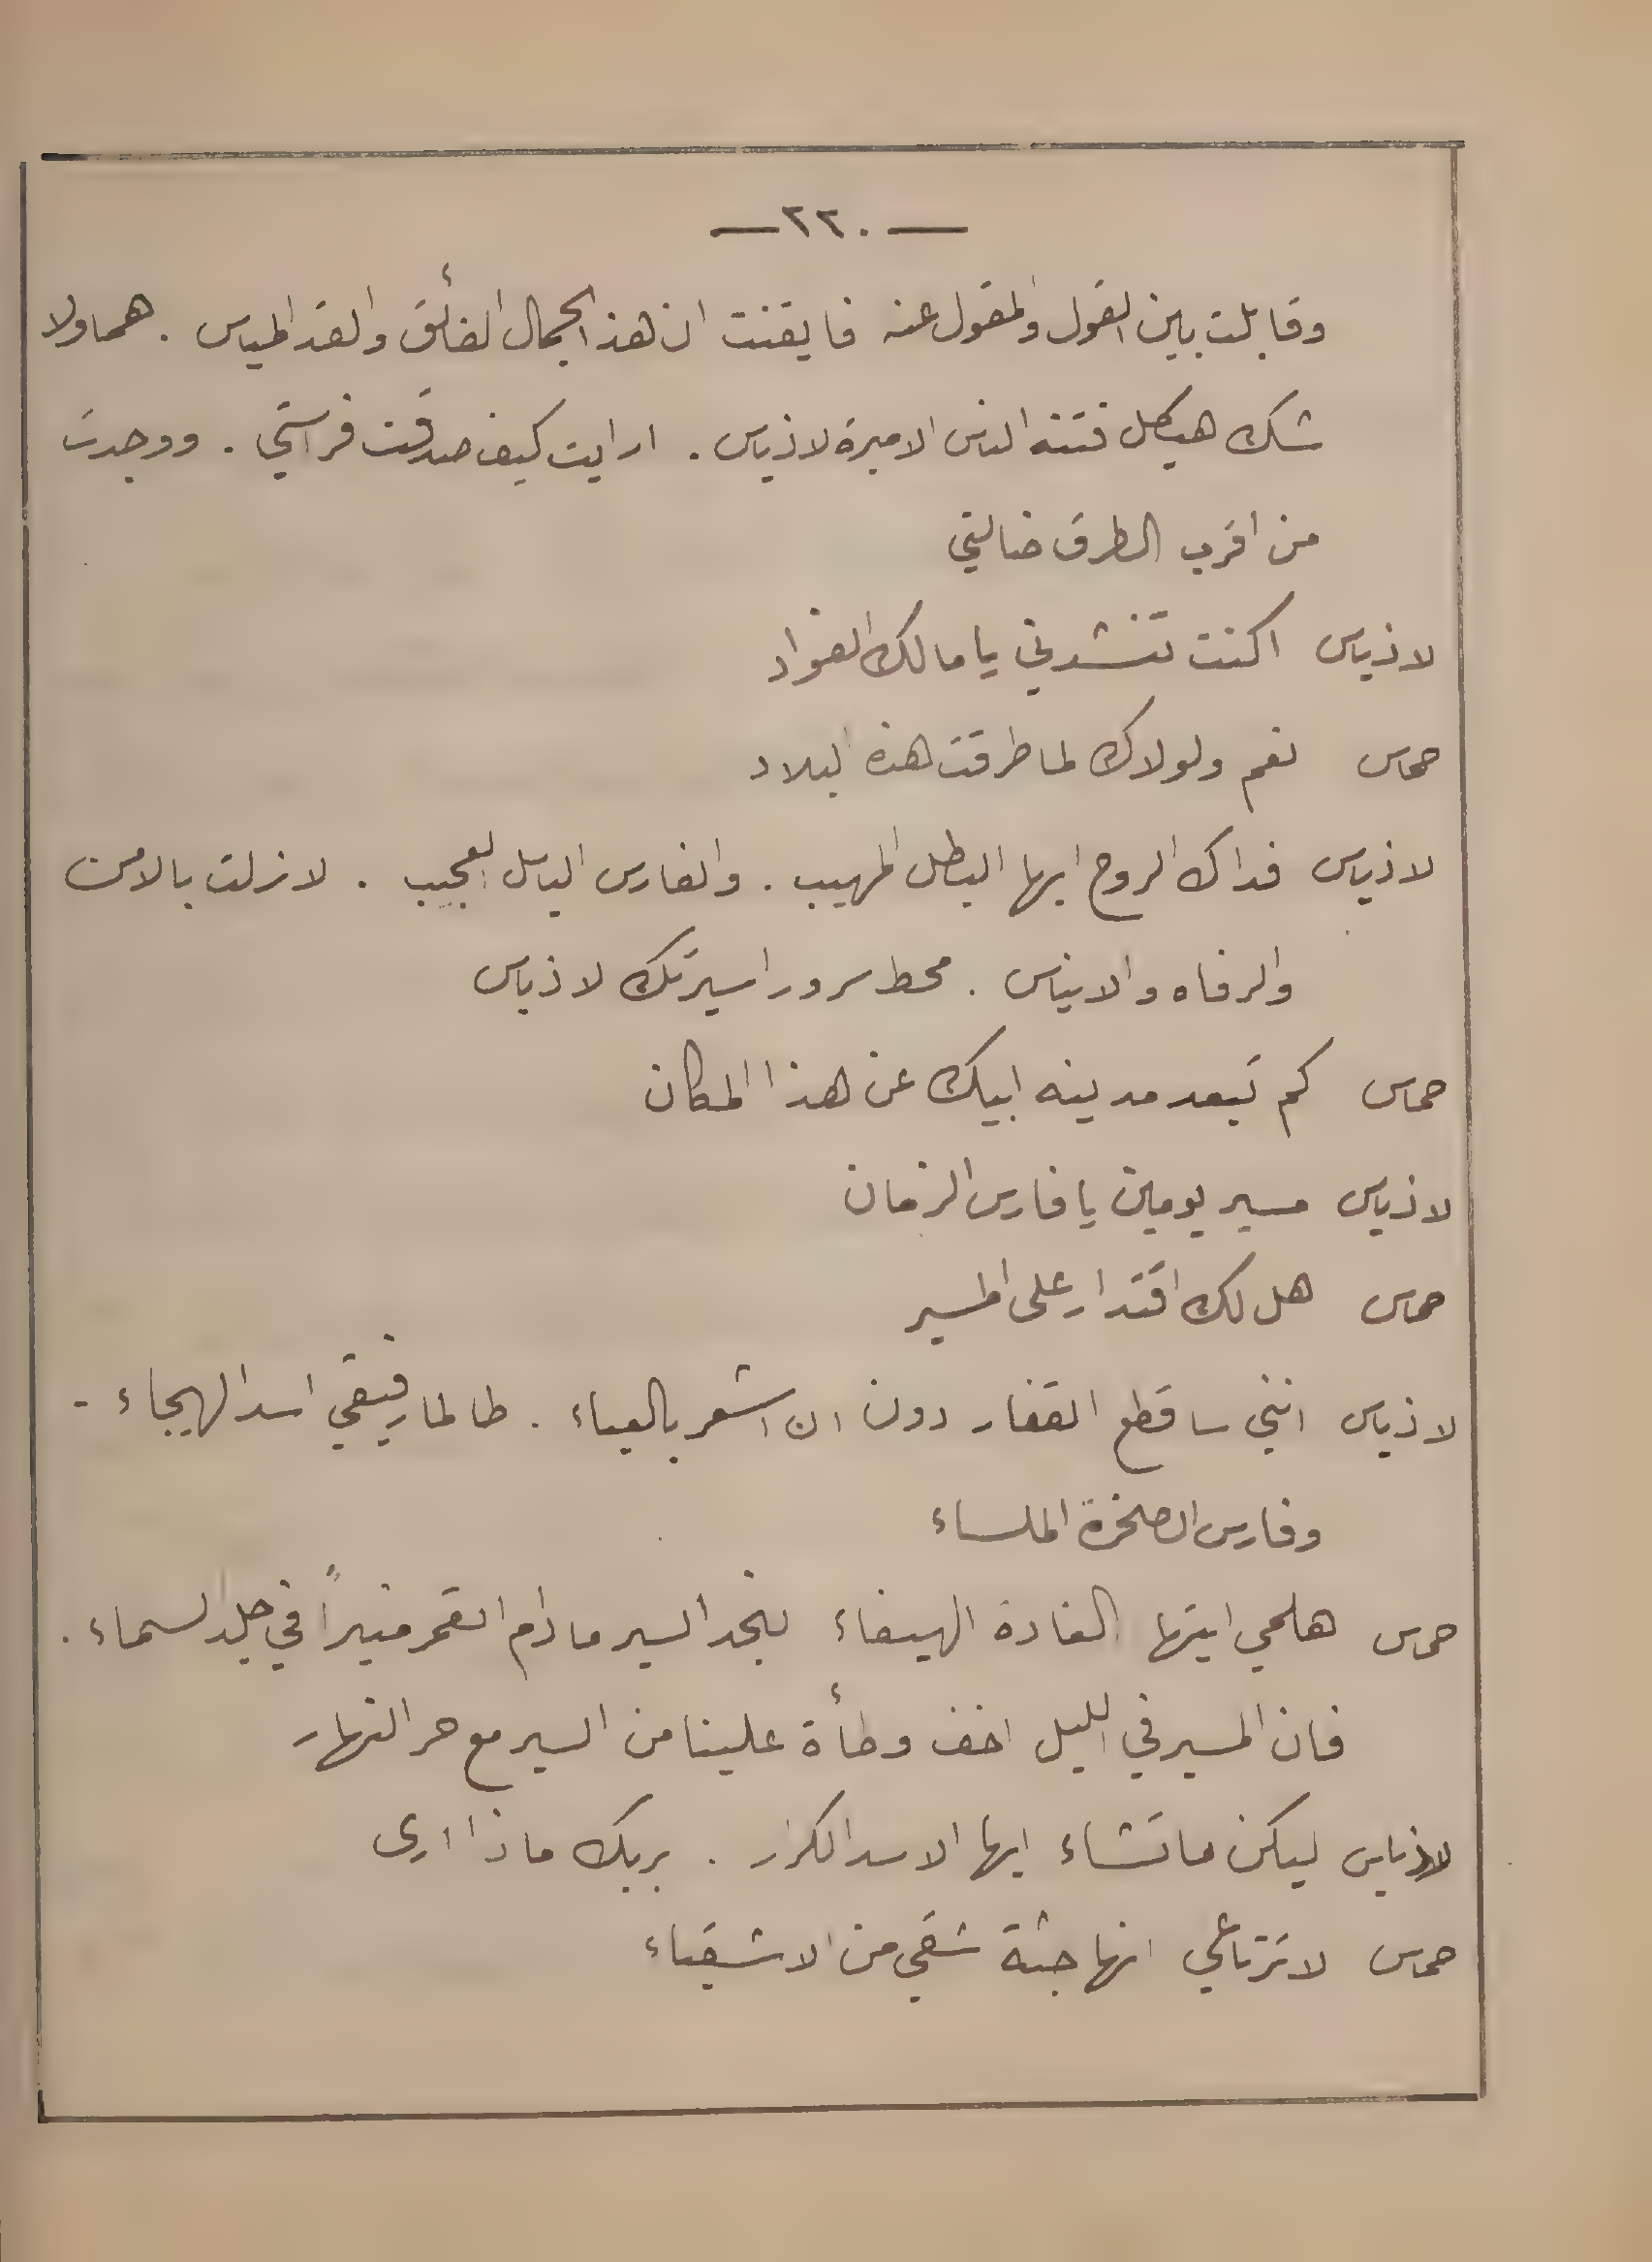 — ٢٢٠ —
وقابلت بين القول والمقول عنه فايقنت ان هذا الجمال الفائق والقد المياس . هما ولا
شك هيكل فتنه الناس الاميرة لاذياس . ارايت كيف صدقت فراستي . ووجدت
من اقرب الطرق ضالتي
لاذياس اكنت تنشدني يا مالك الفواد
حماس نعم ولولاك لما طرقت هذه البلاد
لاذياس فداك الروح ايها البطل المهيب . والفارس الباسل العجيب . لازلت بالامن
والرفاه والايناس . محط سرور اسيرتك لاذياس
حماس كم تبعد مدينه ابيك عن هذا المكان
لاذياس مسير يومين يا فارس الزمان
حماس هل لك اقتدار على المسير
لاذياس انني ساقطع القفار دون ان اشعر بالعياء . طالما رفيقي اسد الهيجاء -
وفارس الصخرة الملساء
حماس هلمي ايتها الغادة الهيفاء نجد السير مادام القمر منيراً في جلد السماء .
فان المسير في الليل اخف وطأة علينا من السير مع حر النهار
لاذياس ليكن ما تشاء ايها الاسد الكرار . بربك ماذا ارى
حماس لا ترتاعي انها جثة شقي من الاشقياء